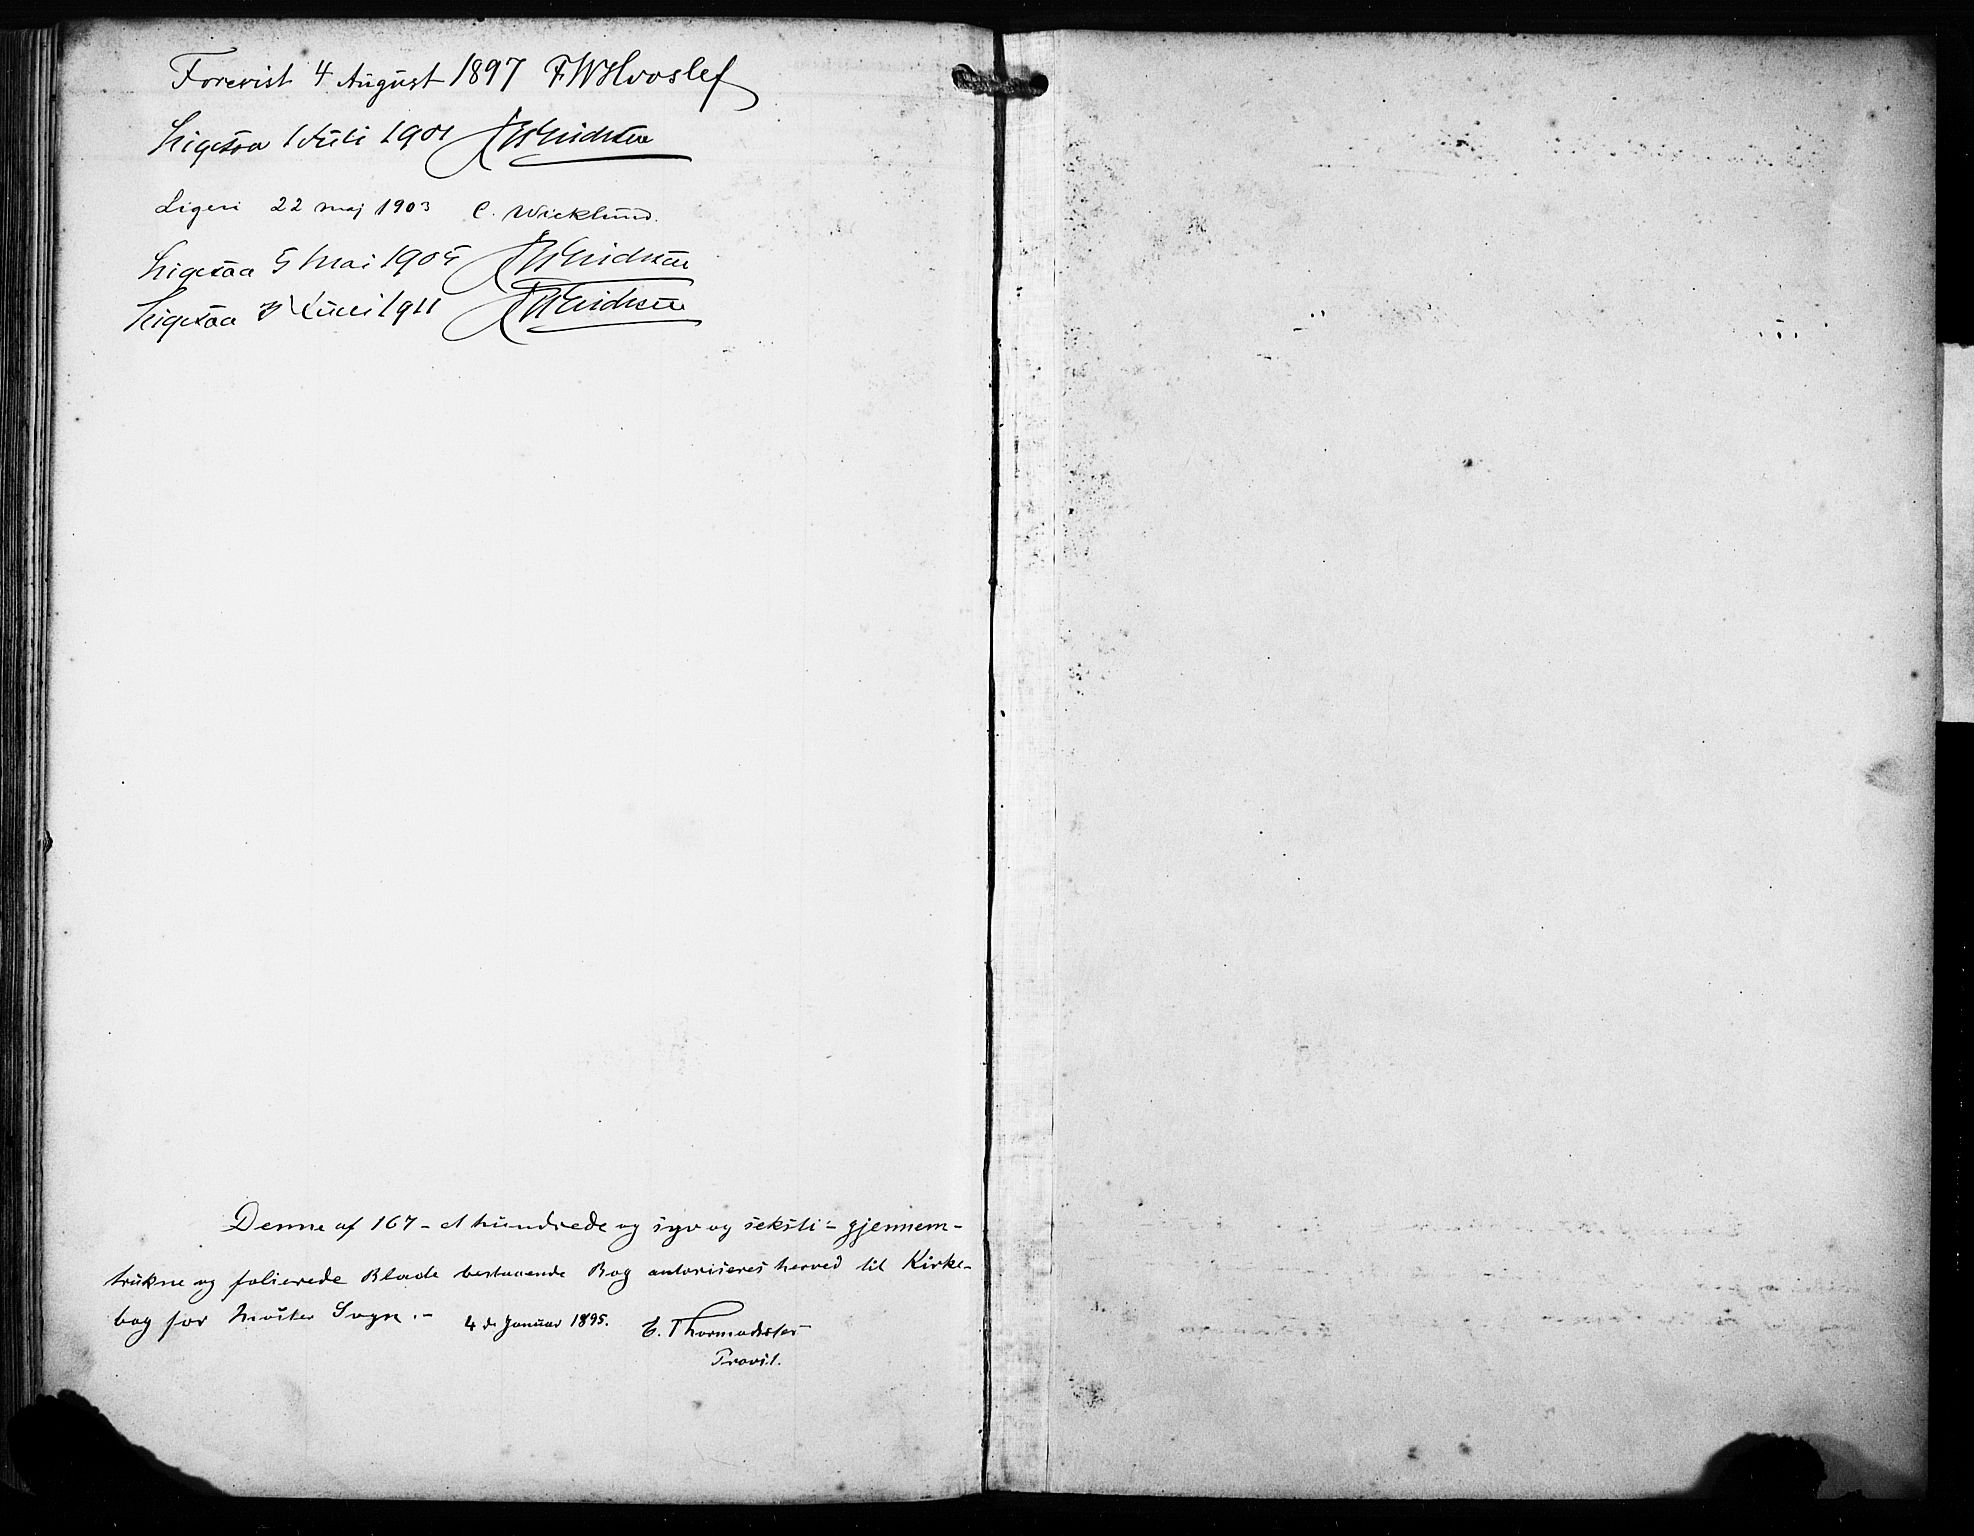 Forevist 4 August 1897 F W Hvoslef
Ligesaa 1 Juli 1901
Ligesi 22 maj 1903 C. Wicklund.
Ligesaa 5 Mai 1905
Ligesaa Juni 1911
Denne af 167 - et hundrede og syv og seksti - gjennem-
trukne og folierede Blade bestaaende Bog autoriseres herved til Kirke-
bog for Sogn. - 4 de Januar 1895. C. Thormodsæter
Provst.